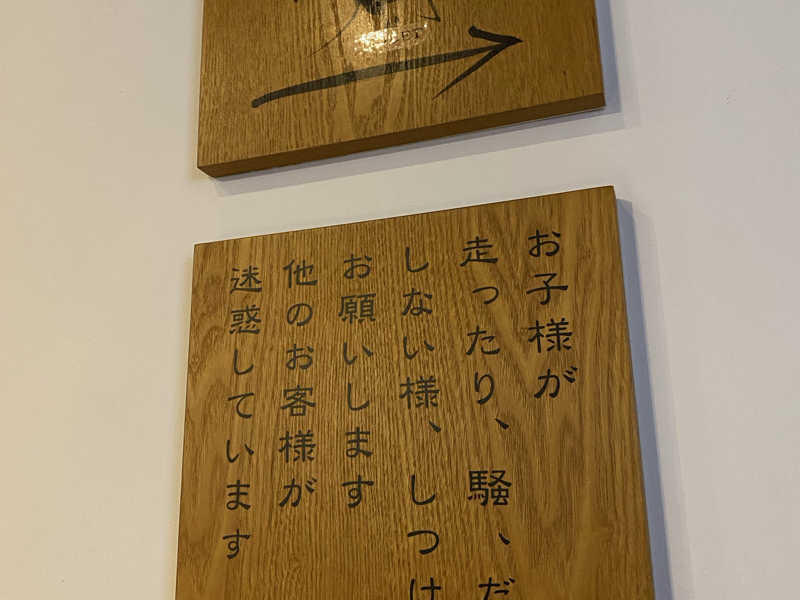 お子様が
走ったり、騒、だ
しない様、しつけ
お願いします
他のお客様が
迷惑しています